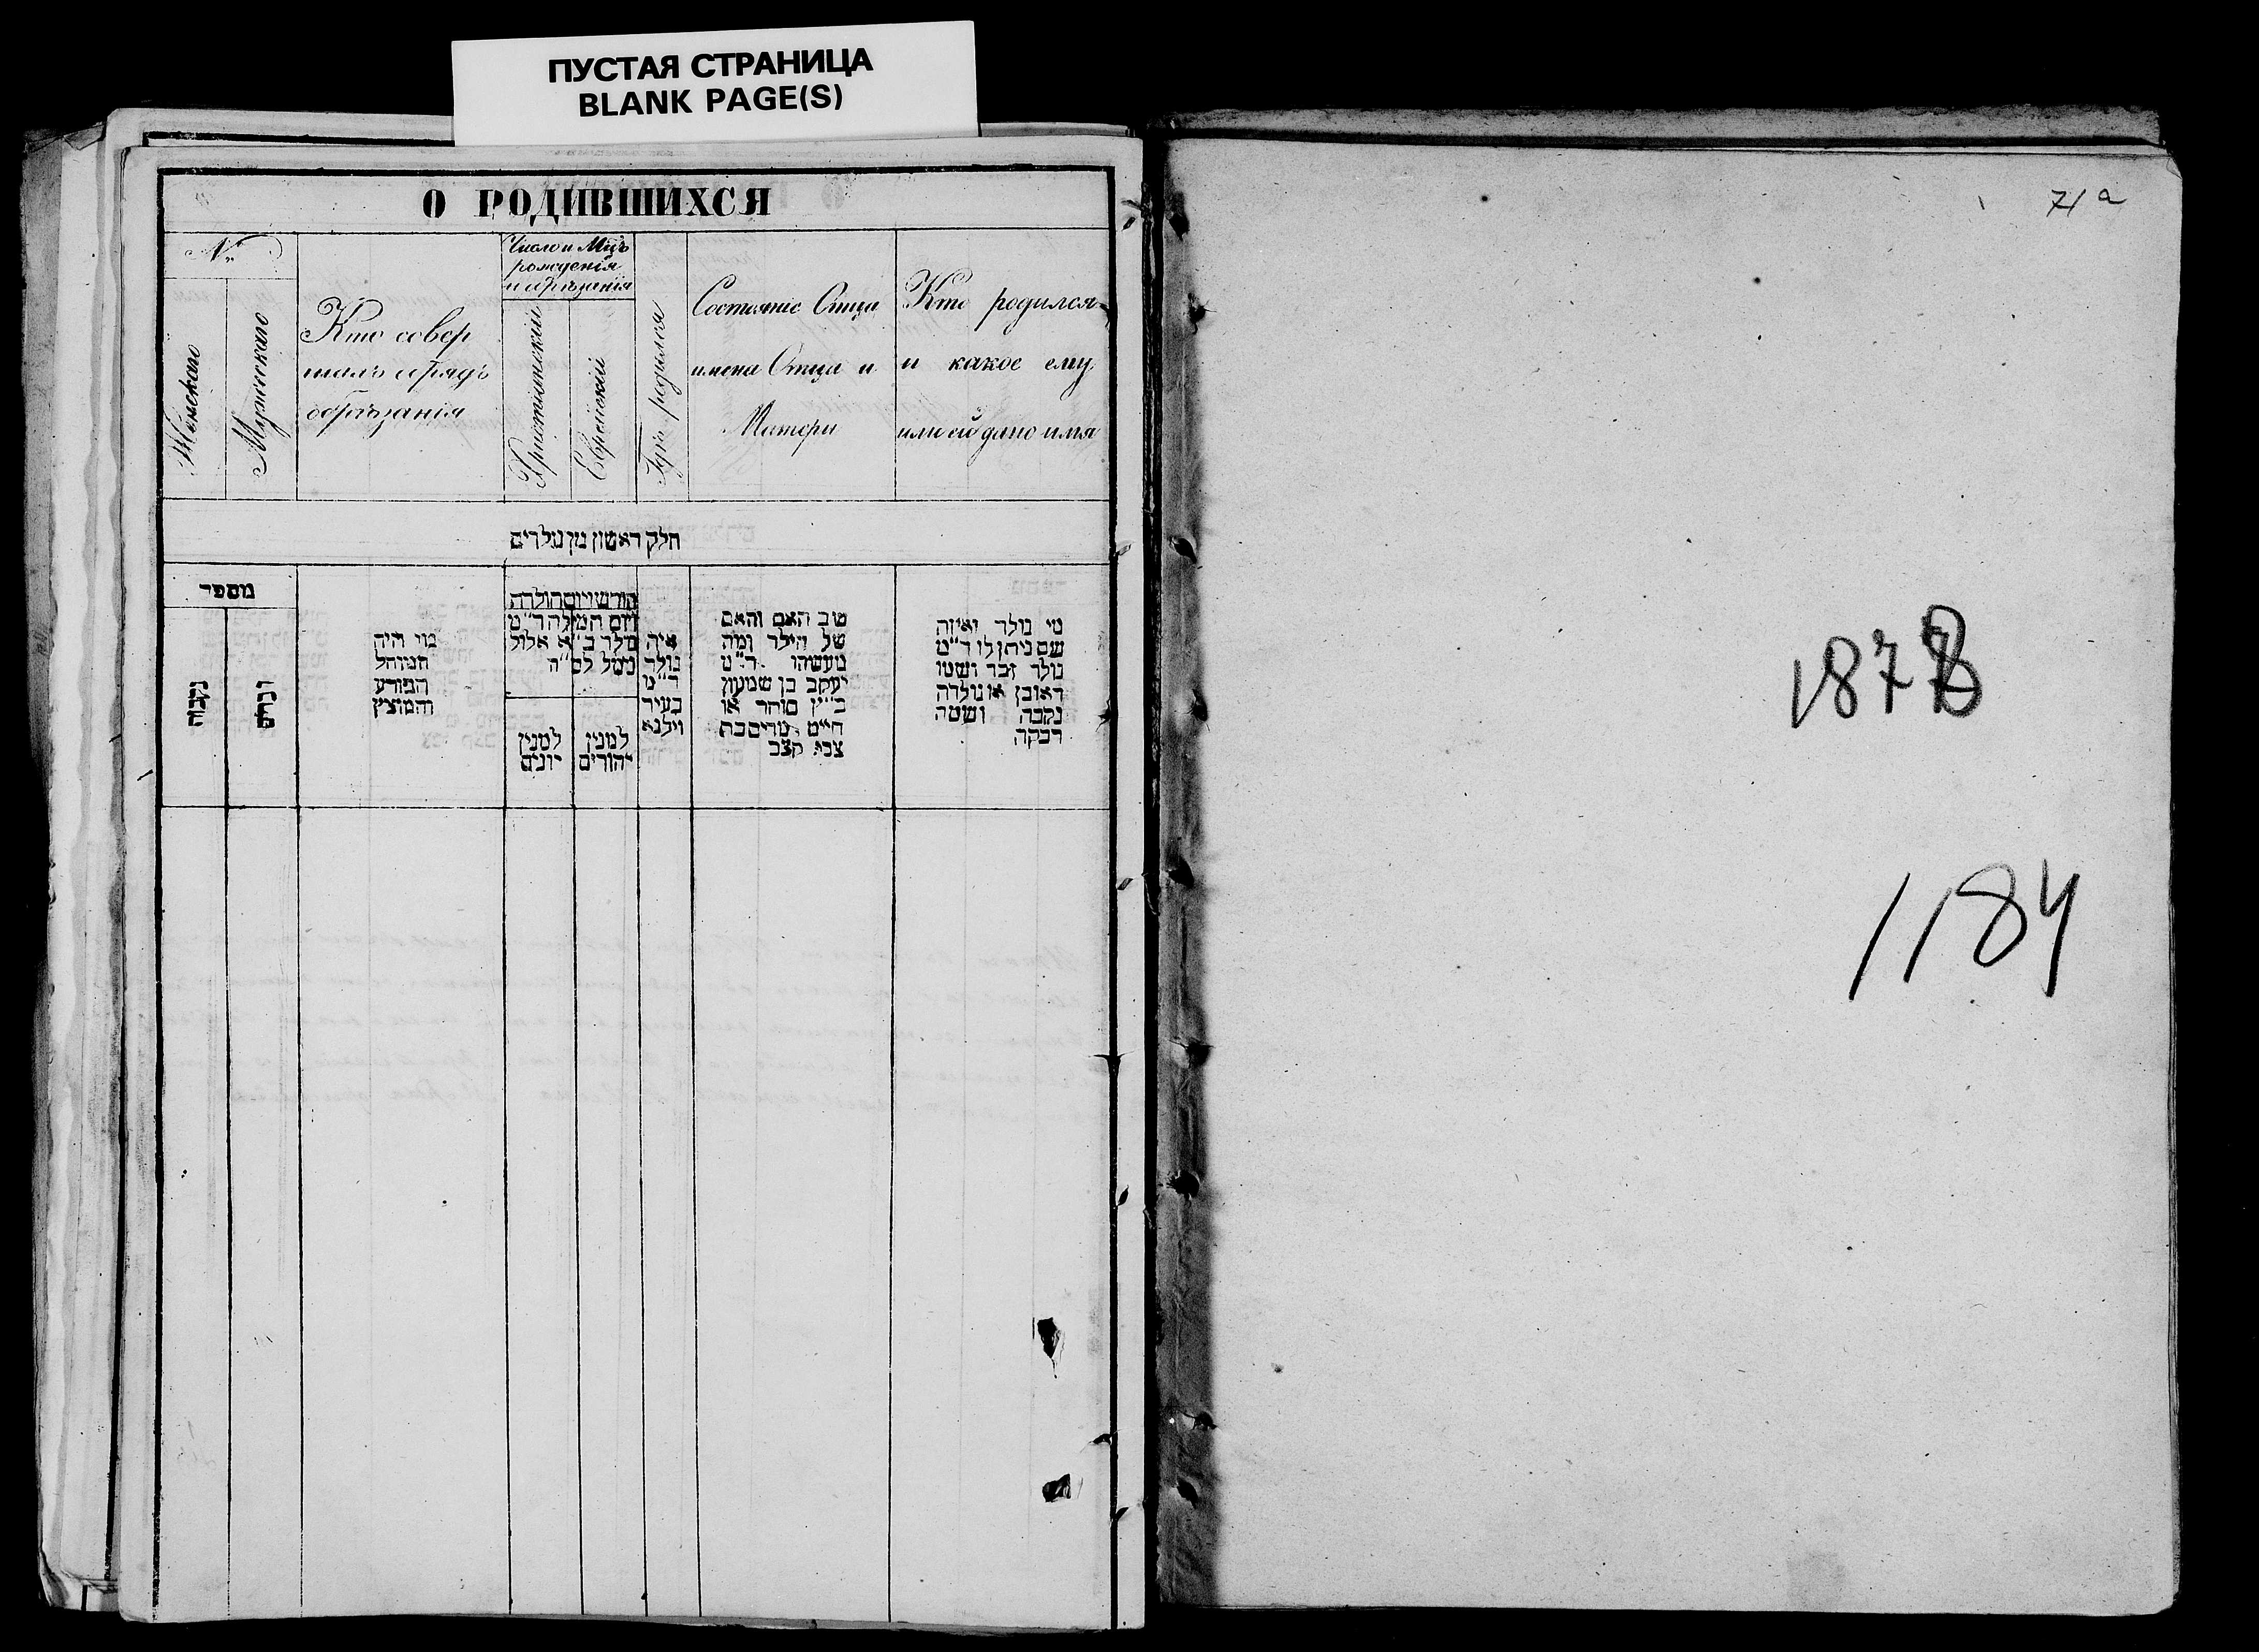 ПУСТАЯ СТРАНИЦА
BLANK PAGE(S)
О РОДИВШИХСЯ
№
Женскаго
Мужескаго
Кто совер
шалъ обрядъ
обрѣзанія
Число и Мцъ
рожденія
и обрѣзанія
Христіанскій
Еврейскій
Гдѣ родился
Состояніе Отца
имена Отца и
Матери
Кто родился
и какое ему
или ей дано имя
חלק ראשון מן נולדים
מספר
נקבה
זכרים
מי היה
המוהל
הפורע
והמוצץ
חודש ויום הולדה
ויום המילה ד״מ
נולד ב״א אלול
נימל
למנין
יונים
למנין
יהודים
איה
נולד
ד״מ
בעיר
ווילנא
שם האב והאם
של הילד ומה
מעשהו ד״מ
יעקב בן שמעון
כ״ץ סוחר או
חייט מרים בת
צבי קצב
מי נולד ואיזה
שם ניתן לו ד״מ
נולד זכר ושמו
ראובן או נולדה
נקבה ושמה
רבקה
71 a
1184